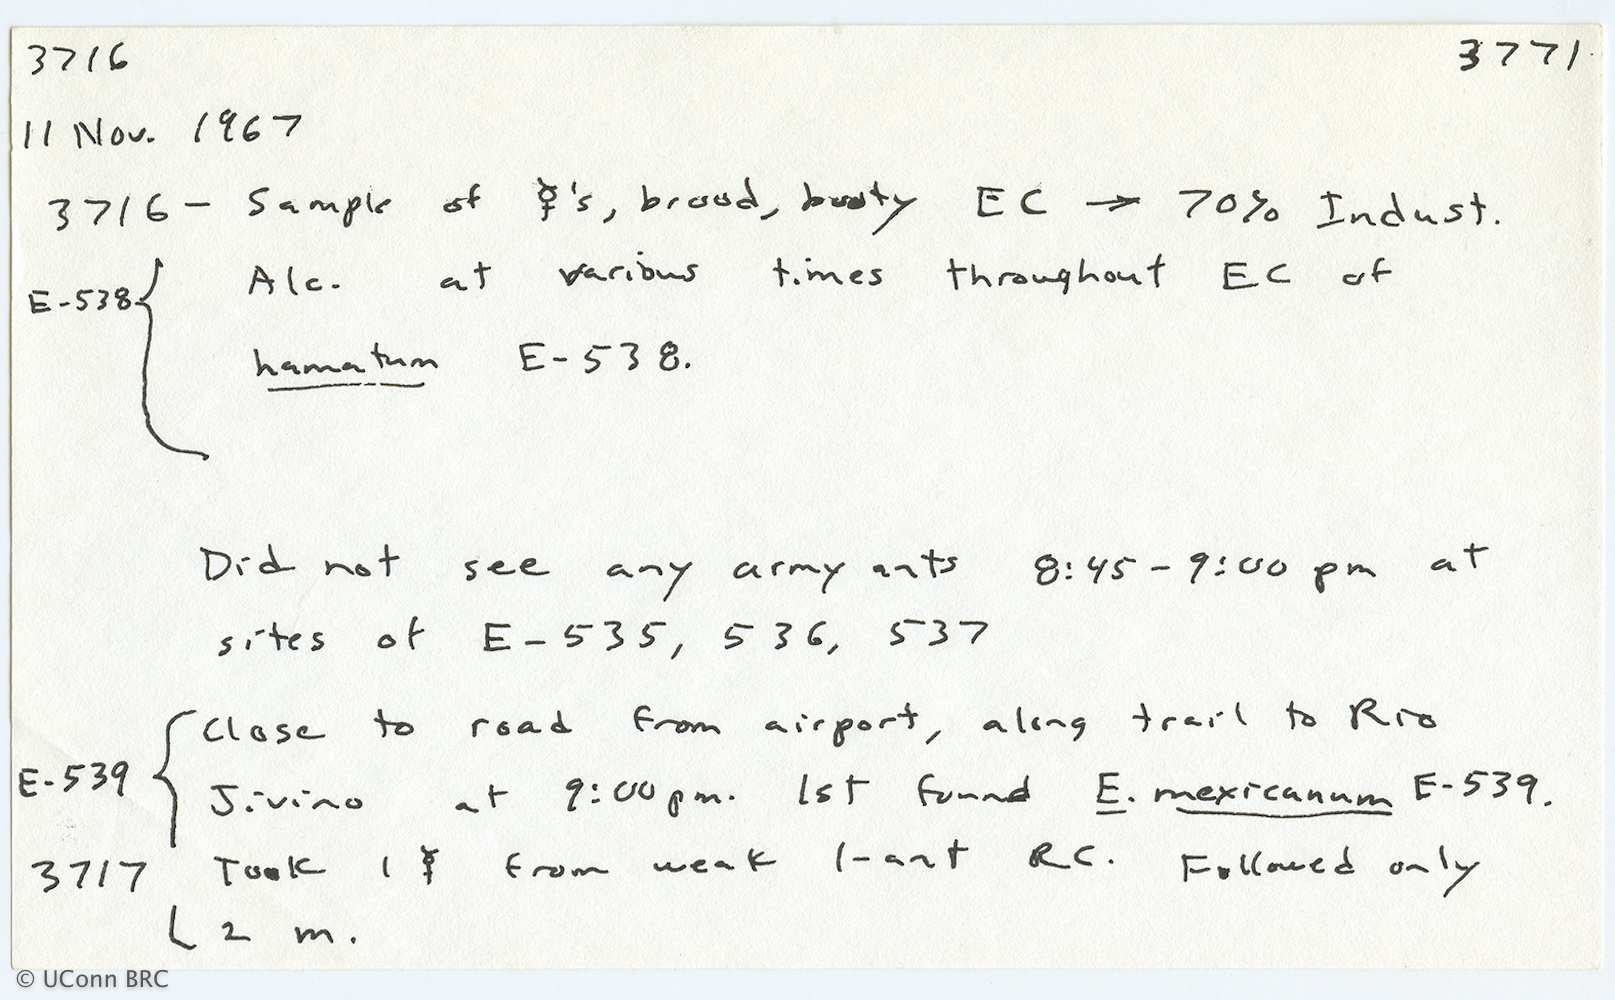 3716 3771
11 Nov. 1967
3716 - Sample of ☿'s, brood, booty EC → 70% Indust.
E-538 { Alc. at various times throughout EC of
hamatum E-538.
Did not see any army ants 8:45 - 9:00 pm at
sites of E-535, 536, 537
Close to road from airport, along trail to Rio
E-539 { Jivino at 9:00 pm. 1st found E. mexicanum E-539.
3717 Took 1 ☿ from weak 1-ant RC. Followed only
2 m.
© UConn BRC